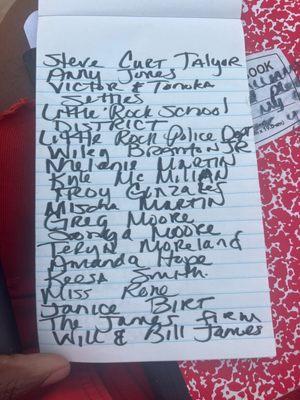 Steve Curt Talyor
Anny Jones
Victor & Tanoka
Settles
Little Rock School
DISTRICT
Little Rock Police Dept
Wiley Branton JR
Melanie MARTIN
Kyle Mc Millan
Troy Gonzales
Mischa MARTIN
Greg Moore
Sonya Moore
Teryn Moreland
Amanda Hope
Reesa Smith
Miss Rone
Janice BIRT
The James firm
Will & Bill James
OOK